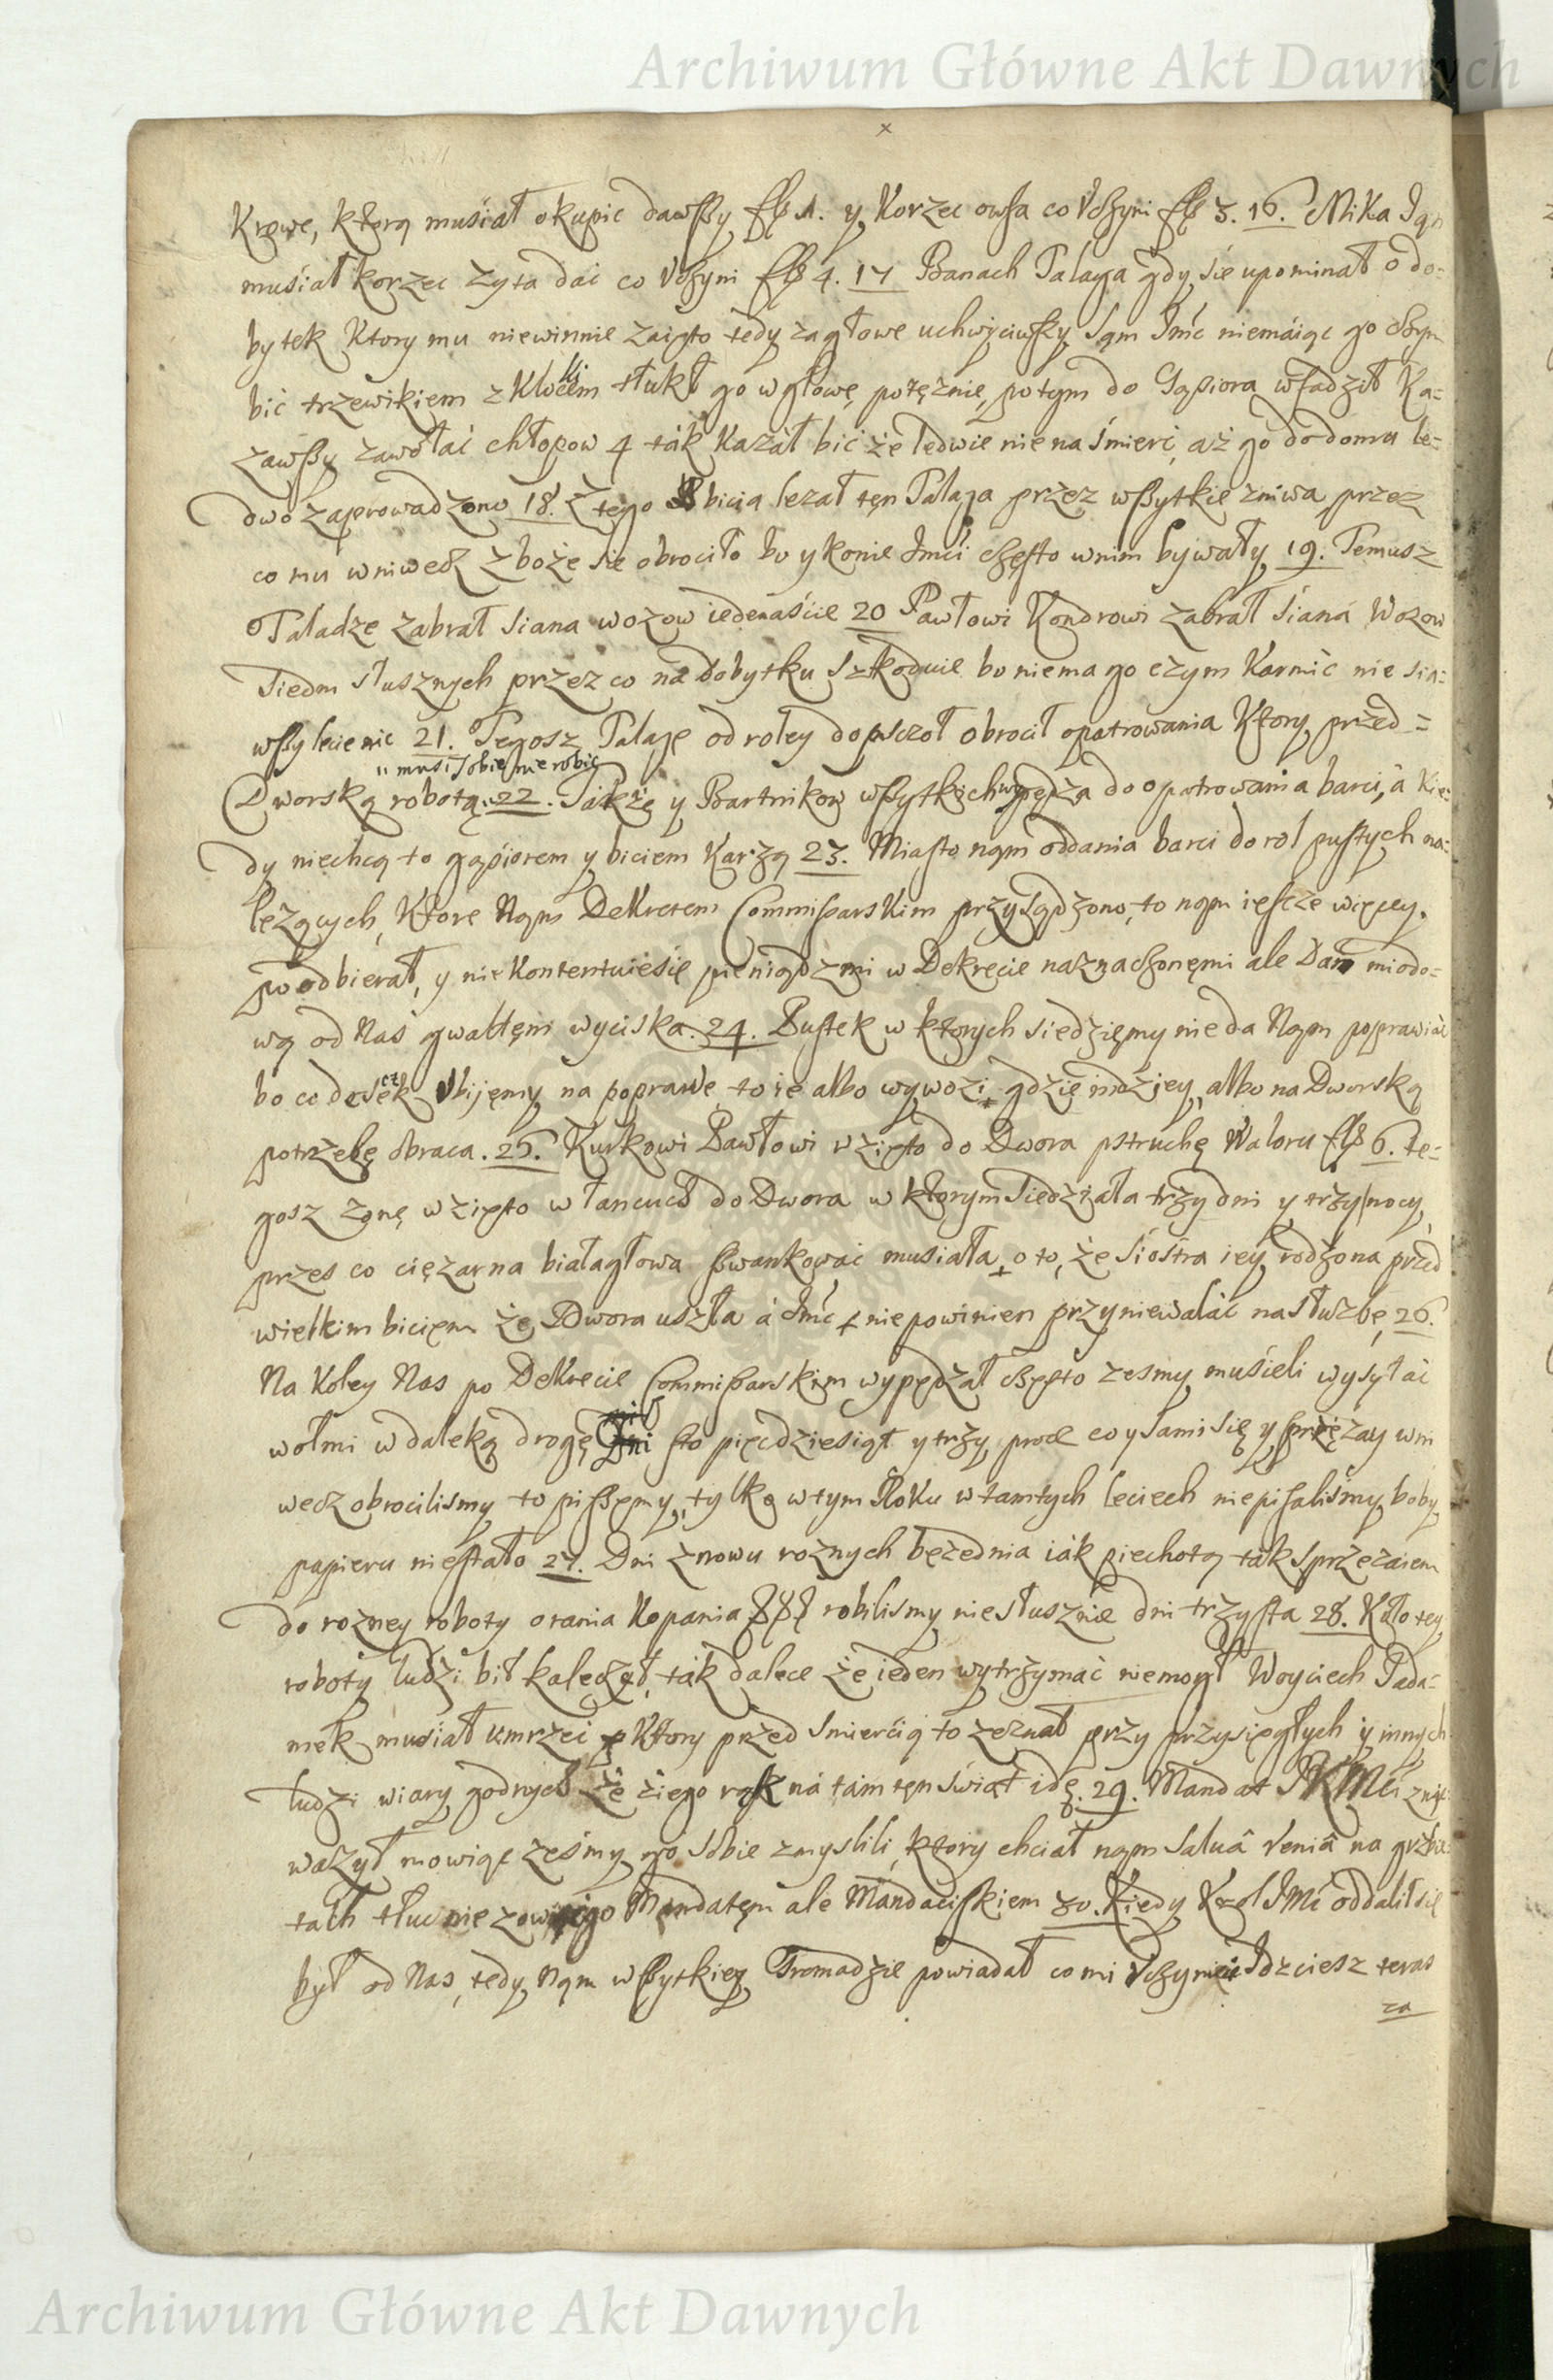 Archiwum Główne Akt Dawnych
Krowe, ktorą musiał okupic dawszy fl 1. y Korzec owsa co Vczyni fl 3. 16. Mika Jan
musiał korzec zyta dać co Vczyni fl 4. 17 Banach Palaga gdy sie upominał o do=
bytek Ktory mu niewinnie zaięto tedy zagłowe uchwyciwszy sąm Jmć niemáiąc go czym
bić trzewikiem z Klockiem tłukł go w głowę potężnie, potym do Gąsiora wsadził Ka=
zawszy zawołać chłopow 4 ták Kazał bić że ledwie nie na śmierć, aż go do domu le=
dwo zaprowadzono 18. Z tego bicia lezał tęn Palaga przez wszytkie zniwa przez
co mu wniwecz zboże się obrociło bo y konie Jmći często wnim bywały 19. Temusz
Paladze zabrał siana wozow iedenaście 20 Pawłowi Kondrowi zabrał siana Wozow
siedm słusznych przez co na dobytku szkoduie bo niema go czym Karmić nie sia=
wszy lecie nic 21. Tegosz Palagę od roley do pszczoł obrocił opatrowania Ktory przed=
musi sobie nie robić
Dworską robotą. 22. Tákże y Bartnikow wszytkich wypędza do opatrowania barci, á Kie=
dy niechcą to gąsiorem y biciem Karzą 23. Miasto nąm oddania barci do rol pustych na=
leżących, Ktore Nąm Dekretem Commissarskim przysądzono, to nąm ieszcze więcey
poodbierał, y nie Kontentuie się pieniądzmi w Dekrecie naznaczonęmi ale Dań miodo=
wą od Nas gwałtęm wyciska. 24. Pustek w ktorych siedzięmy nie da Nąm poprawiać
bo co deseczek Vbijęmy na poprawę to ie albo wywozi gdzie indziey, albo na Dworską
potrzebę obraca. 25. Kurkowi Pawłowi wzięto do Dwora pstruchę Waloru fl 6. te=
gosz zonę wzięto w łancuch do Dwora w ktorym siedziała trzy dni y trzy nocy,
przes co ciężarna białagłowa szwankować musiała, o to, że siostra iey rodzona przed
wielkim bicięm ze Dwora uszła á Jmć niepowinien przyniewalać na służbę, 26.
Na Koley Nas po Dekrecie Commissarskim wypędzał często zesmy muśieli wysyłać
wołmi w daleką drogę mil sto pięcdziesiąt y trzy, procz co y sami się y sprzęzay wni
wecz obrocilismy to piszęmy, tylko w tym Roku w tamtych leciech niepisaliśmy, boby
papieru niestało 27. Dni znowu roznych bęzednia iák piechotą ták sprzęzaiem
do rozney roboty orania Kopania robilismy niesłusznie dni trzysta 28. Koło tey
roboty ludzi bił kaleczył, ták dalece że ieden wytrzymać niemogł Woyciech Pada=
mek musiał umrzeć Ktory przed śmiercią to zeznał przy przysięgłych y innych
ludzi wiary godnych że z iego rąk ná támtęn świat idę. 29. Mandat JKMći znie
ważył mowiąc ześmy go sobie zmyslili, ktory chciał nąm salua venia na grzbie
tach tłuc nie zowiąc go Mandatęm ale Mandaciskiem 30. Kiedy Krol JMć oddalił się
był od Nas, tedy Nąm wszytkiey Gromadzie powiadał co mi Vczynicie Idzciesz teras
za
Archiwum Główne Akt Dawnych